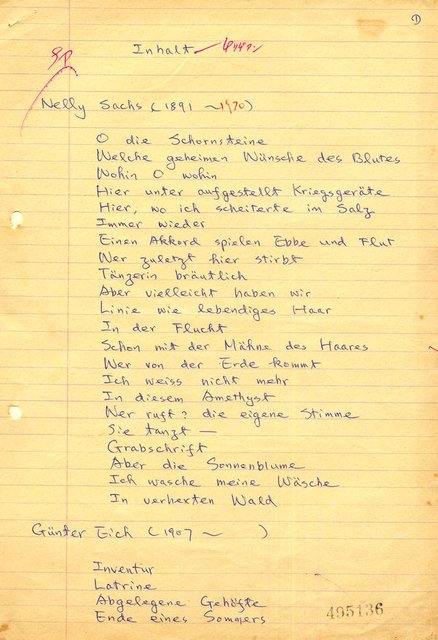 ①
Inhalt
Nelly Sachs (1891 ~1970)
O die Schornsteine
Welche geheimen Wünsche des Blutes
Wohin O wohin
Hier unter aufgestellt Kriegsgeräte
Hier, wo ich scheiterte im Salz
Immer wieder
Einen Akkord spielen Ebbe und Flut
Wer zuletzt hier stirbt
Tänzerin bräutlich
Aber vielleicht haben wir
Linie wie lebendiges Haar
In der Flucht
Schon mit der Mähne des Haares
Wer von der Erde kommt
Ich weiss nicht mehr
In diesem Amethyst
Wer ruft? die eigene Stimme
Sie tanzt —
Grabschrift
Aber die Sonnenblume
Ich wasche meine Wäsche
In verhexten Wald
Günter Eich (1907 ~ )
Inventur
Latrine
Abgelegene Gehöfte
Ende eines Sommers
495136